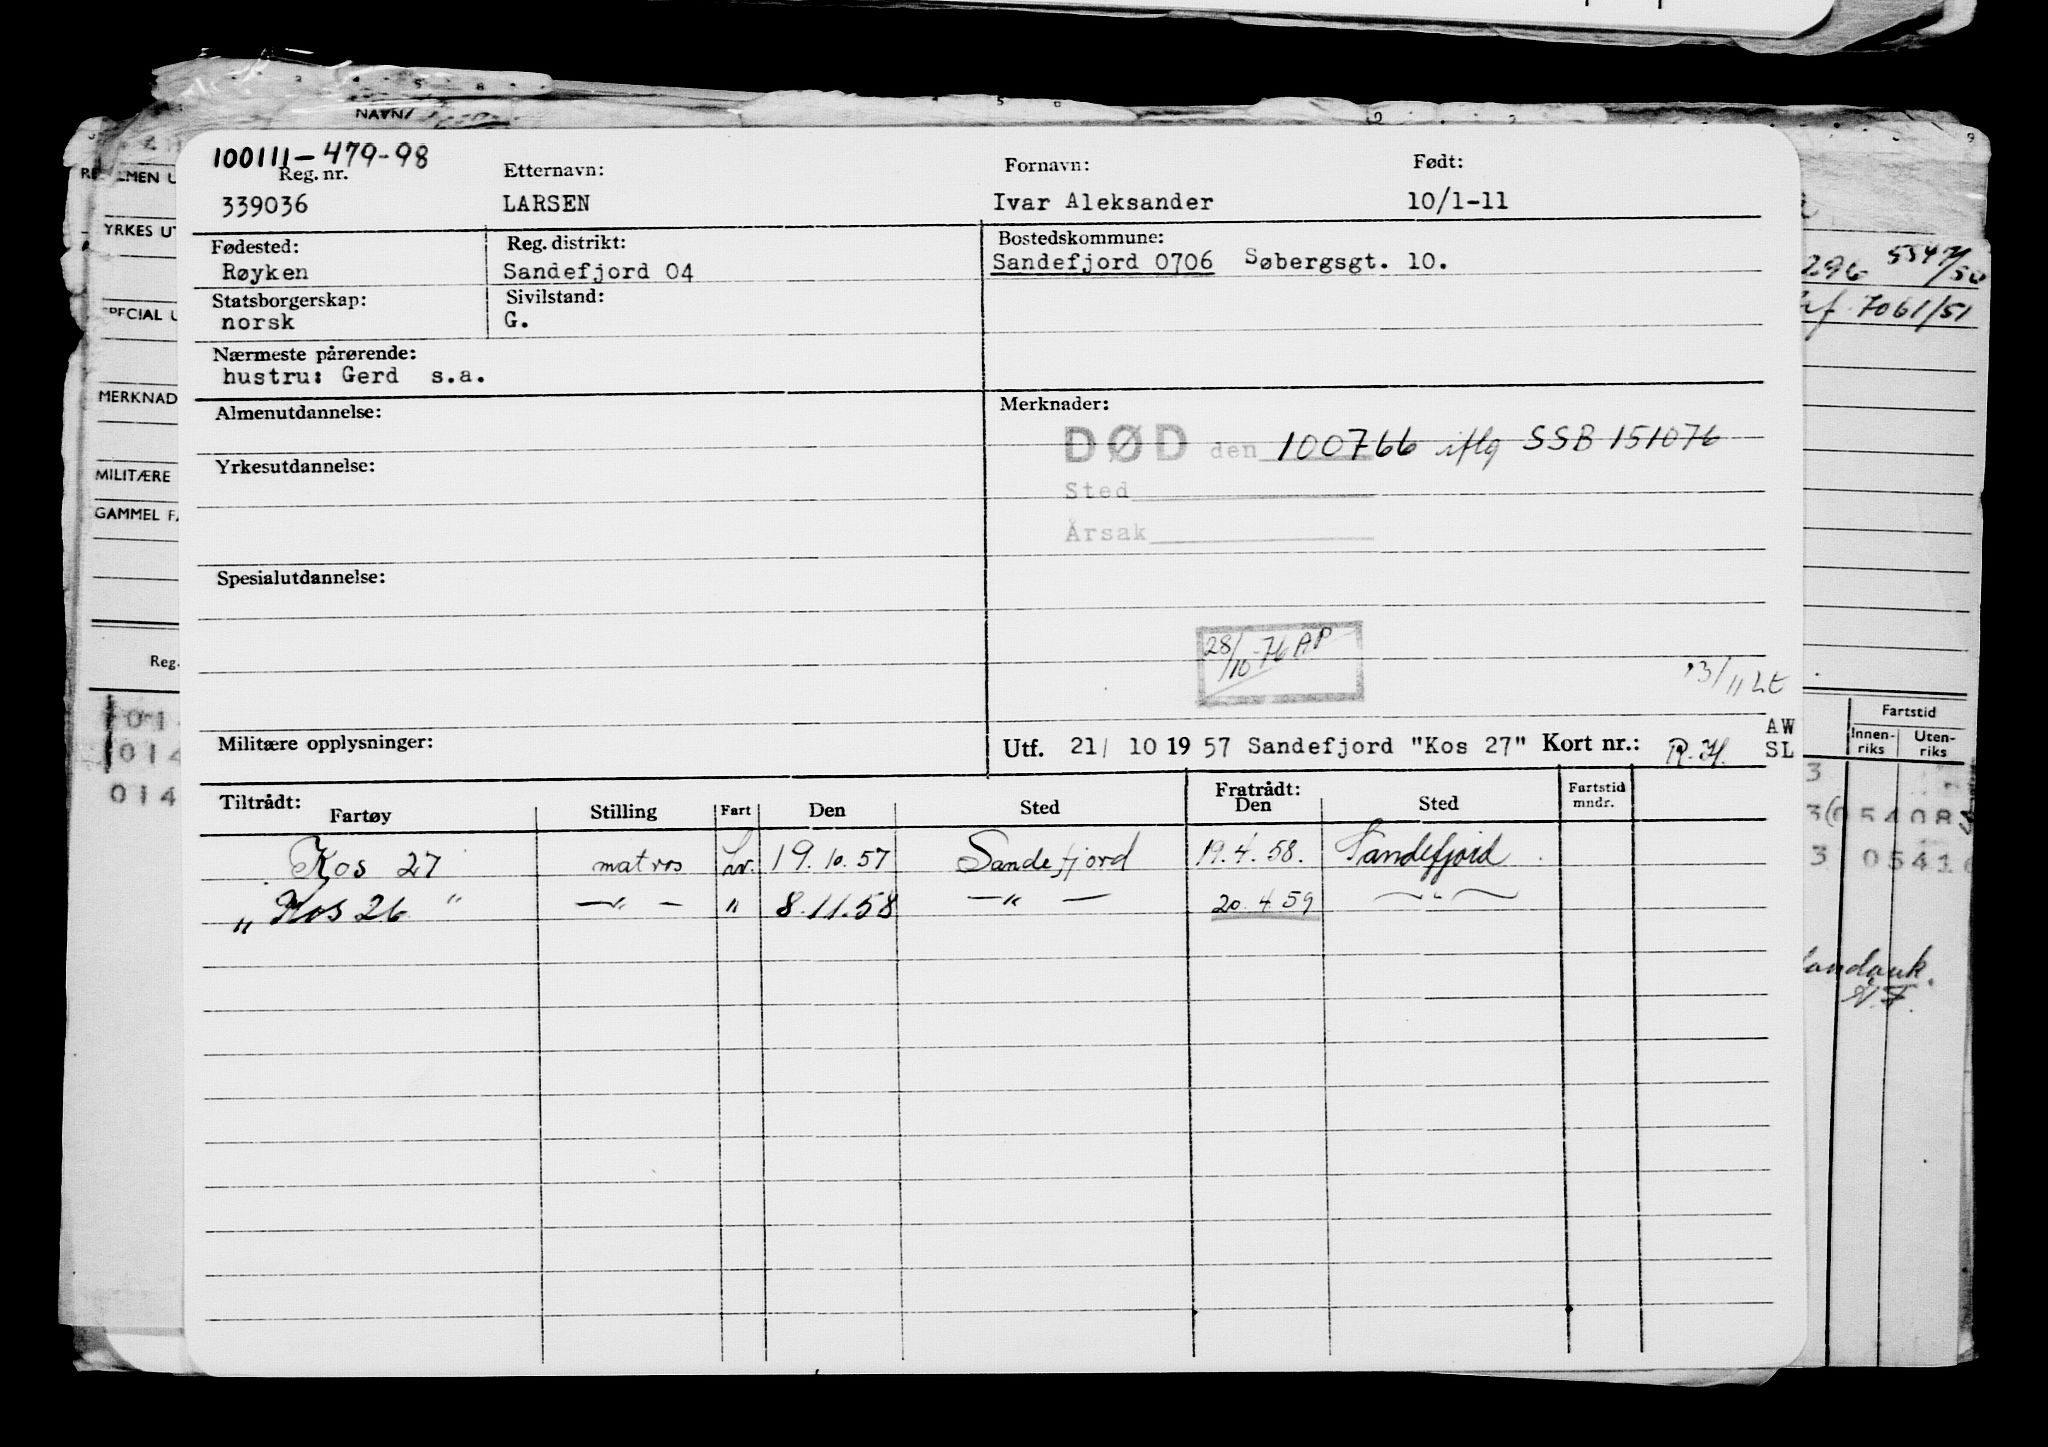 NAVN
100111-479-98
Reg. nr. Etternavn: Fornavn: Født:
339036 LARSEN Ivar Aleksander 10/1-11
Fødested: Reg. distrikt: Bostedskommune:
Røyken Sandefjord 04 Sandefjord 0706 Søbergsgt. 10.
Statsborgerskap: Sivilstand:
norsk G.
Nærmeste pårørende:
hustru: Gerd s.a.
Almenutdannelse: Merknader:
DØD den 100766 iflg SSB 151076
Yrkesutdannelse:
Sted
Årsak
Spesialutdannelse:
28/10-76 AP
13/11 LE
Militære opplysninger: Utf. 21/ 10 19 57 Sandefjord "Kos 27" Kort nr.: R.H. AW SL
Tiltrådt: Fratrådt: Fartstid mndr.
Fartøy Stilling Fart Den Sted Den Sted
Kos 27 matros hv. 19.10.57 Sandefjord 19.4.58. Sandefjord
"Kos 26" —"— " 8.11.58 —"— 20.4.59 —"—
YRKES UT
SPECIAL U
MERKNAD
MILITÆRE
GAMMEL FA
Reg.
014
014
296 5547/50
7061/51
Fartstid
Innen-riks Uten-riks
3
3 05408
3 0541